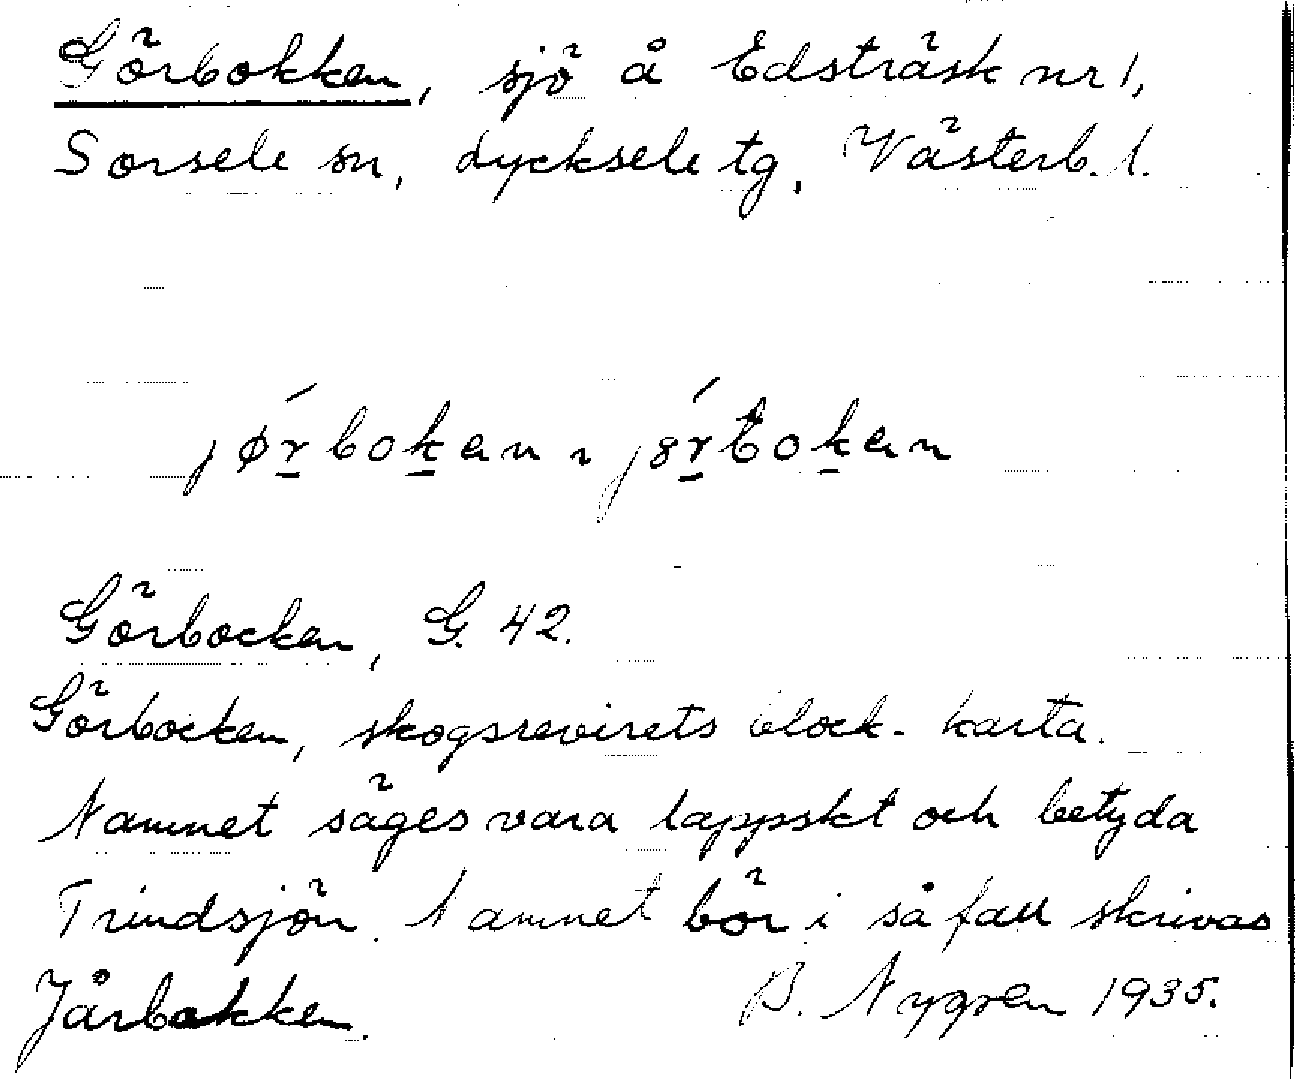 Görbokken, sjö å Edsträsk nr 1,
Sorsele sn, Lycksele tg, Västerb. l.
jørboken ~ jörboken
Görbocken, G. 42.
Görbocken, skogsrevirets block-karta.
Namnet säges vara lappskt och betyda
Trindsjön. Namnet bör i så fall skrivas
Jårbokken. B. Nygren 1935.